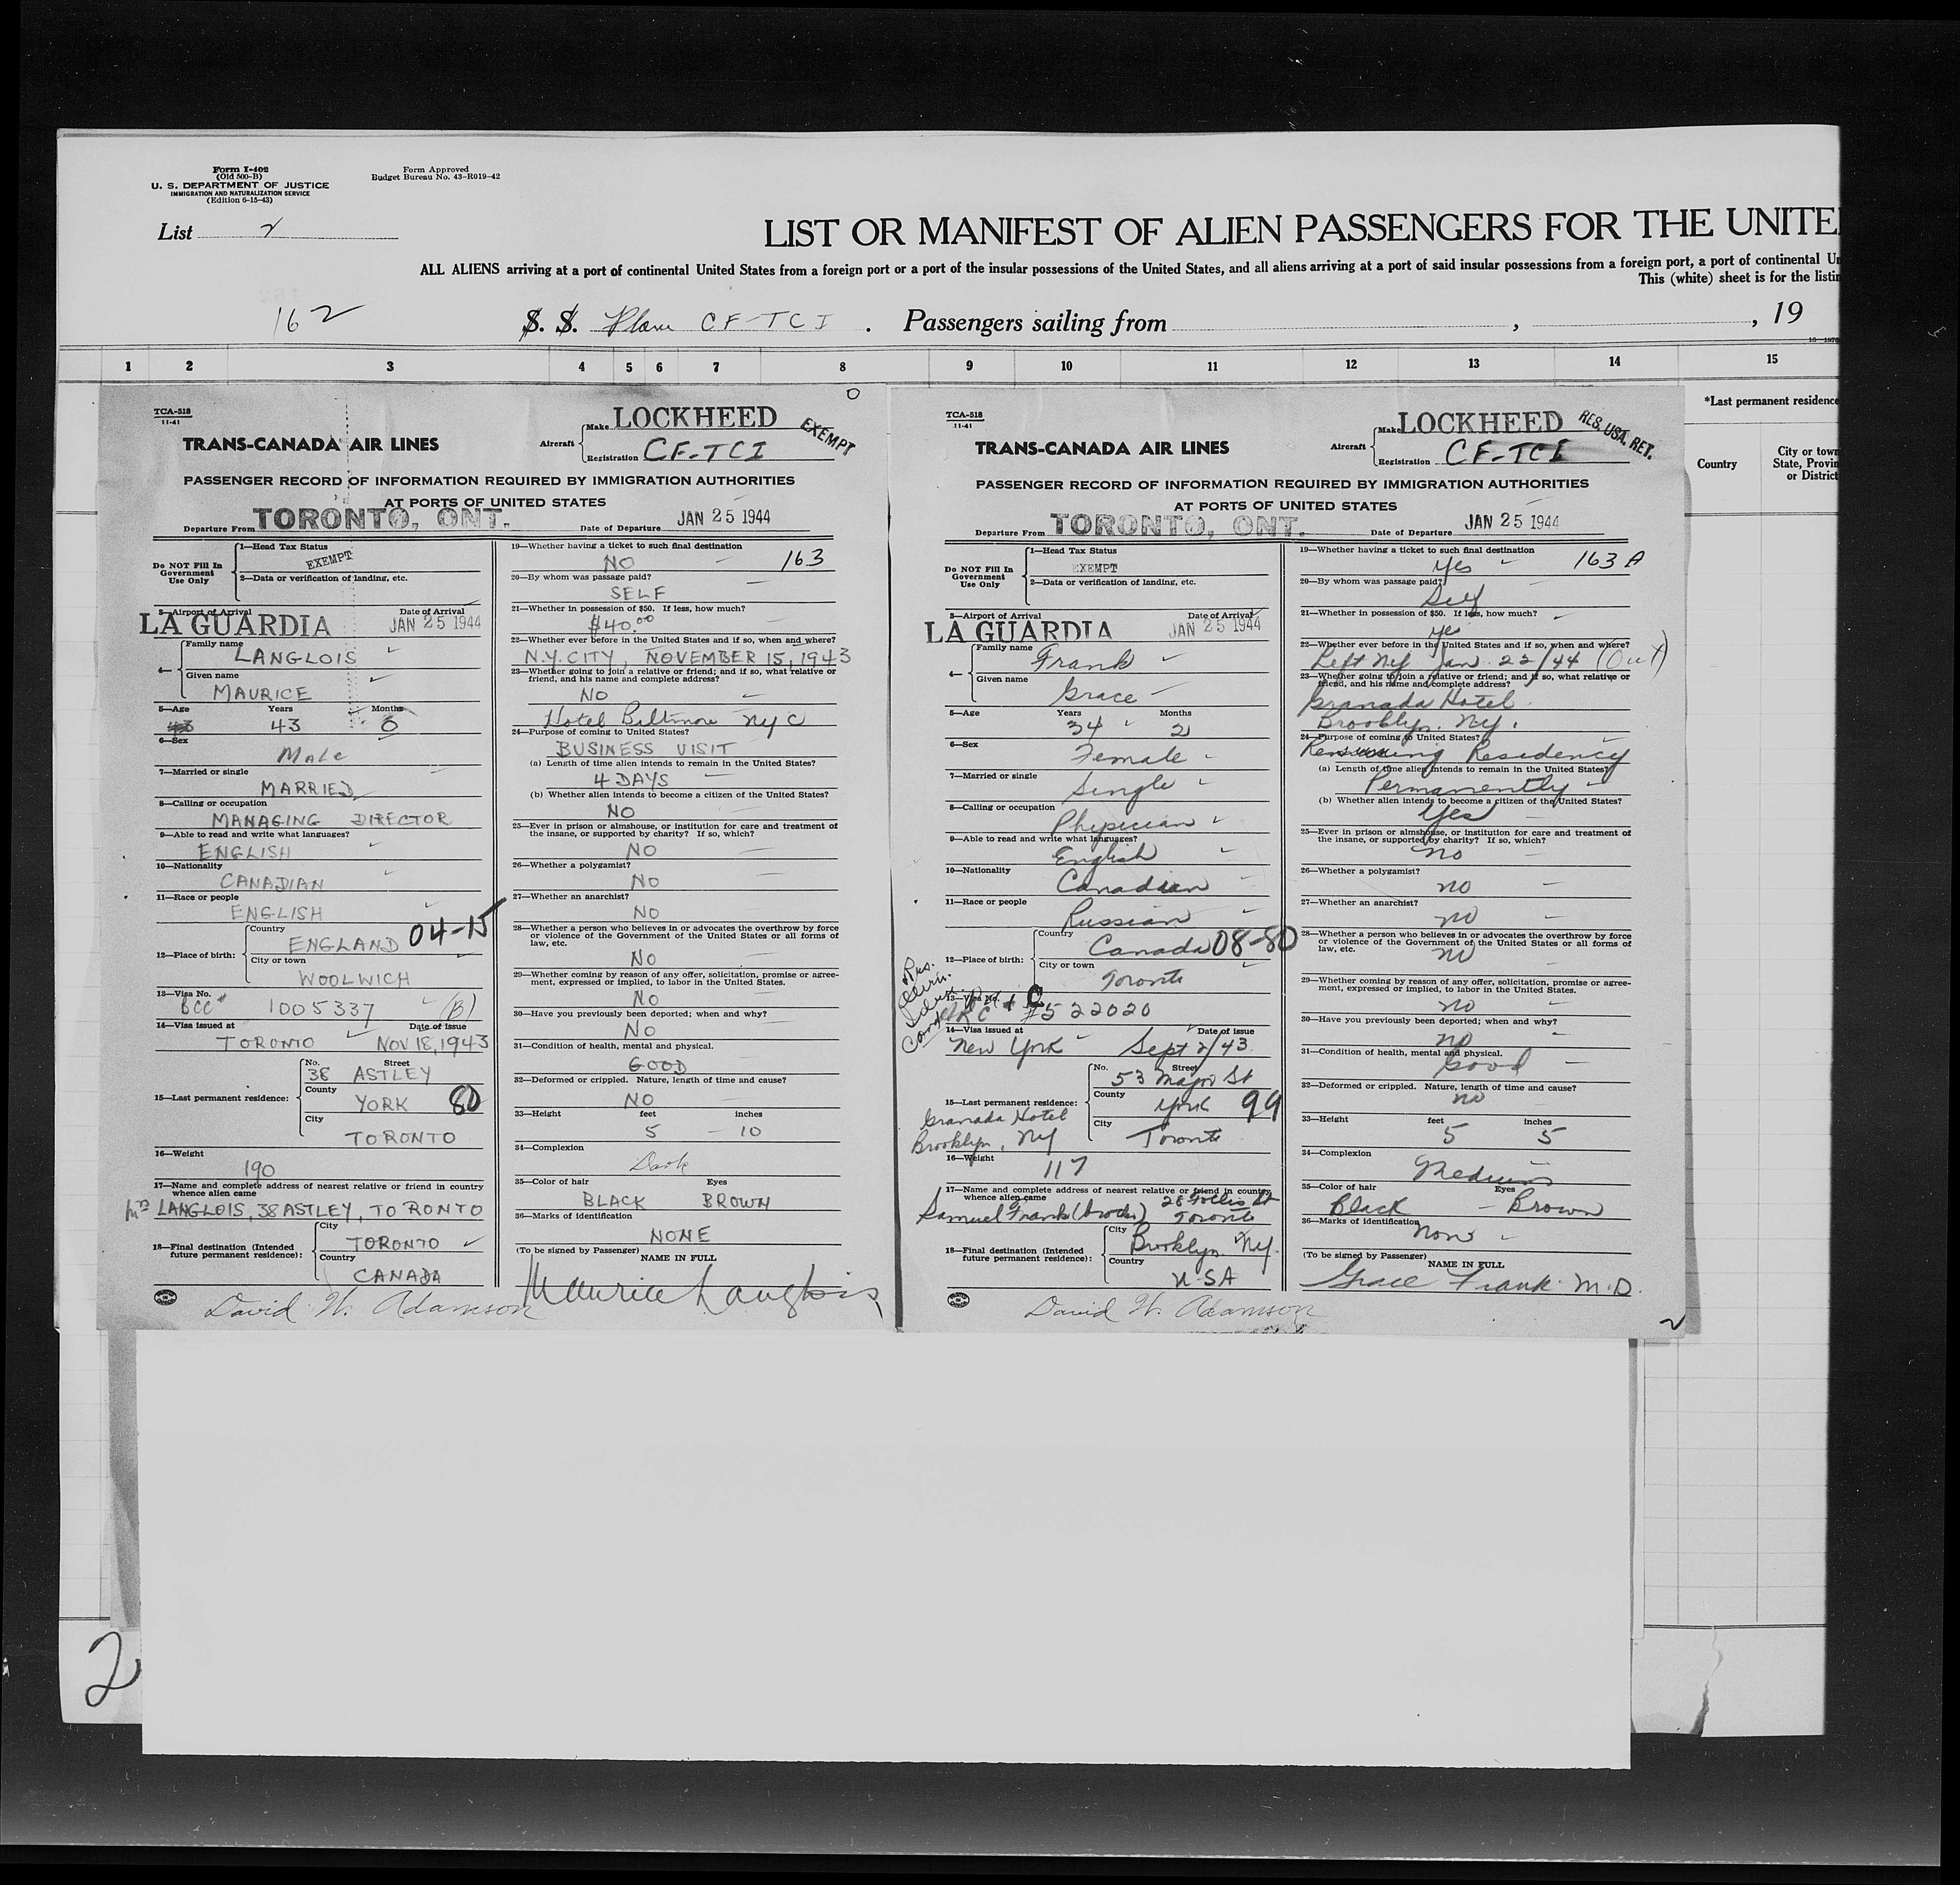 Form I-402
(Old 500-B)
U. S. DEPARTMENT OF JUSTICE
IMMIGRATION AND NATURALIZATION SERVICE
(Edition 6-15-43)
Form Approved
Budget Bureau No. 43-R019-42
List 2
LIST OR MANIFEST OF ALIEN PASSENGERS FOR THE UNITE
ALL ALIENS arriving at a port of continental United States from a foreign port or a port of the insular possessions of the United States, and all aliens arriving at a port of said insular possessions from a foreign port, a port of continental Un
This (white) sheet is for the listin
162
S. S. Plane CF-TCI . Passengers sailing from , , 19
1 2 3 4 5 6 7 8 9 10 11 12 13 14 15
*Last permanent residence
Country
City or town
State, Provin
or District
TCA-518
11-41
TRANS-CANADA AIR LINES
Aircraft
Make LOCKHEED
Registration CF-TCI
EXEMPT
PASSENGER RECORD OF INFORMATION REQUIRED BY IMMIGRATION AUTHORITIES
AT PORTS OF UNITED STATES
Departure From TORONTO, ONT.
Date of Departure JAN 25 1944
Do NOT Fill In
Government
Use Only
1—Head Tax Status
EXEMPT
2—Data or verification of landing, etc.
3—Airport of Arrival Date of Arrival
LA GUARDIA JAN 25 1944
4—
Family name
LANGLOIS
Given name
MAURICE
5—Age Years Months
43 43 6
6—Sex
Male
7—Married or single
MARRIED
8—Calling or occupation
MANAGING DIRECTOR
9—Able to read and write what languages?
ENGLISH
10—Nationality
CANADIAN
11—Race or people
ENGLISH
12—Place of birth:
Country
ENGLAND 04-15
City or town
WOOLWICH
13—Visa No.
BCC # 1005337 (B)
14—Visa issued at Date of issue
TORONTO NOV 18, 1943
15—Last permanent residence:
No. Street
38 ASTLEY
County
YORK 80
City
TORONTO
16—Weight
190
17—Name and complete address of nearest relative or friend in country
whence alien came
Mrs LANGLOIS, 38 ASTLEY, TORONTO
18—Final destination (Intended
future permanent residence):
City
TORONTO
Country
CANADA
David W. Adamson
19—Whether having a ticket to such final destination
NO 163
20—By whom was passage paid?
SELF
21—Whether in possession of $50. If less, how much?
$40.00
22—Whether ever before in the United States and if so, when and where?
N.Y. CITY, NOVEMBER 15, 1943
23—Whether going to join a relative or friend; and if so, what relative or
friend, and his name and complete address?
NO
Hotel Biltmore NYC
24—Purpose of coming to United States?
BUSINESS VISIT
(a) Length of time alien intends to remain in the United States?
4 DAYS
(b) Whether alien intends to become a citizen of the United States?
NO
25—Ever in prison or almshouse, or institution for care and treatment of
the insane, or supported by charity? If so, which?
NO
26—Whether a polygamist?
NO
27—Whether an anarchist?
NO
28—Whether a person who believes in or advocates the overthrow by force
or violence of the Government of the United States or all forms of
law, etc.
NO
29—Whether coming by reason of any offer, solicitation, promise or agree-
ment, expressed or implied, to labor in the United States.
NO
30—Have you previously been deported; when and why?
NO
31—Condition of health, mental and physical.
GOOD
32—Deformed or crippled. Nature, length of time and cause?
NO
33—Height feet inches
5 - 10
34—Complexion
Dark
35—Color of hair Eyes
BLACK BROWN
36—Marks of identification
NONE
(To be signed by Passenger) NAME IN FULL
Maurice Langlois
TCA-518
11-41
TRANS-CANADA AIR LINES
Aircraft
Make LOCKHEED
Registration CF-TCI
RES. USA. RET.
PASSENGER RECORD OF INFORMATION REQUIRED BY IMMIGRATION AUTHORITIES
AT PORTS OF UNITED STATES
Departure From TORONTO, ONT.
Date of Departure JAN 25 1944
Do NOT Fill In
Government
Use Only
1—Head Tax Status
EXEMPT
2—Data or verification of landing, etc.
3—Airport of Arrival Date of Arrival
LA GUARDIA JAN 25 1944
4—
Family name
Frank
Given name
Grace
5—Age Years Months
34 2
6—Sex
Female
7—Married or single
Single
8—Calling or occupation
Physician
9—Able to read and write what languages?
English
10—Nationality
Canadian
11—Race or people
Russian
12—Place of birth:
Country
Canada 08-80
City or town
Toronto
13—Visa No.
#522020
14—Visa issued at Date of issue
New York Sept 2/43
15—Last permanent residence:
Granada Hotel
Brooklyn, NY
No. Street
53 Major St
County
York 99
City
Toronto
16—Weight
117
17—Name and complete address of nearest relative or friend in country
whence alien came 28 Follis St
Samuel Frank (brother) Toronto
18—Final destination (Intended
future permanent residence):
City
Brooklyn NY.
Country
USA
David W. Adamson
19—Whether having a ticket to such final destination
Yes 163 A
20—By whom was passage paid?
Self
21—Whether in possession of $50. If less, how much?
Yes
22—Whether ever before in the United States and if so, when and where?
Left NY Jan. 22/44 (Out)
23—Whether going to join a relative or friend; and if so, what relative or
friend, and his name and complete address?
Granada Hotel.
Brooklyn. NY.
24—Purpose of coming to United States?
Resuming Residency
(a) Length of time alien intends to remain in the United States?
Permanently
(b) Whether alien intends to become a citizen of the United States?
Yes
25—Ever in prison or almshouse, or institution for care and treatment of
the insane, or supported by charity? If so, which?
no
26—Whether a polygamist?
no
27—Whether an anarchist?
no
28—Whether a person who believes in or advocates the overthrow by force
or violence of the Government of the United States or all forms of
law, etc.
no
29—Whether coming by reason of any offer, solicitation, promise or agree-
ment, expressed or implied, to labor in the United States.
no
30—Have you previously been deported; when and why?
no
31—Condition of health, mental and physical.
Good
32—Deformed or crippled. Nature, length of time and cause?
no
33—Height feet inches
5 5
34—Complexion
Medium
35—Color of hair Eyes
Black - Brown
36—Marks of identification
None
(To be signed by Passenger) NAME IN FULL
Grace Frank M.D.
2
2